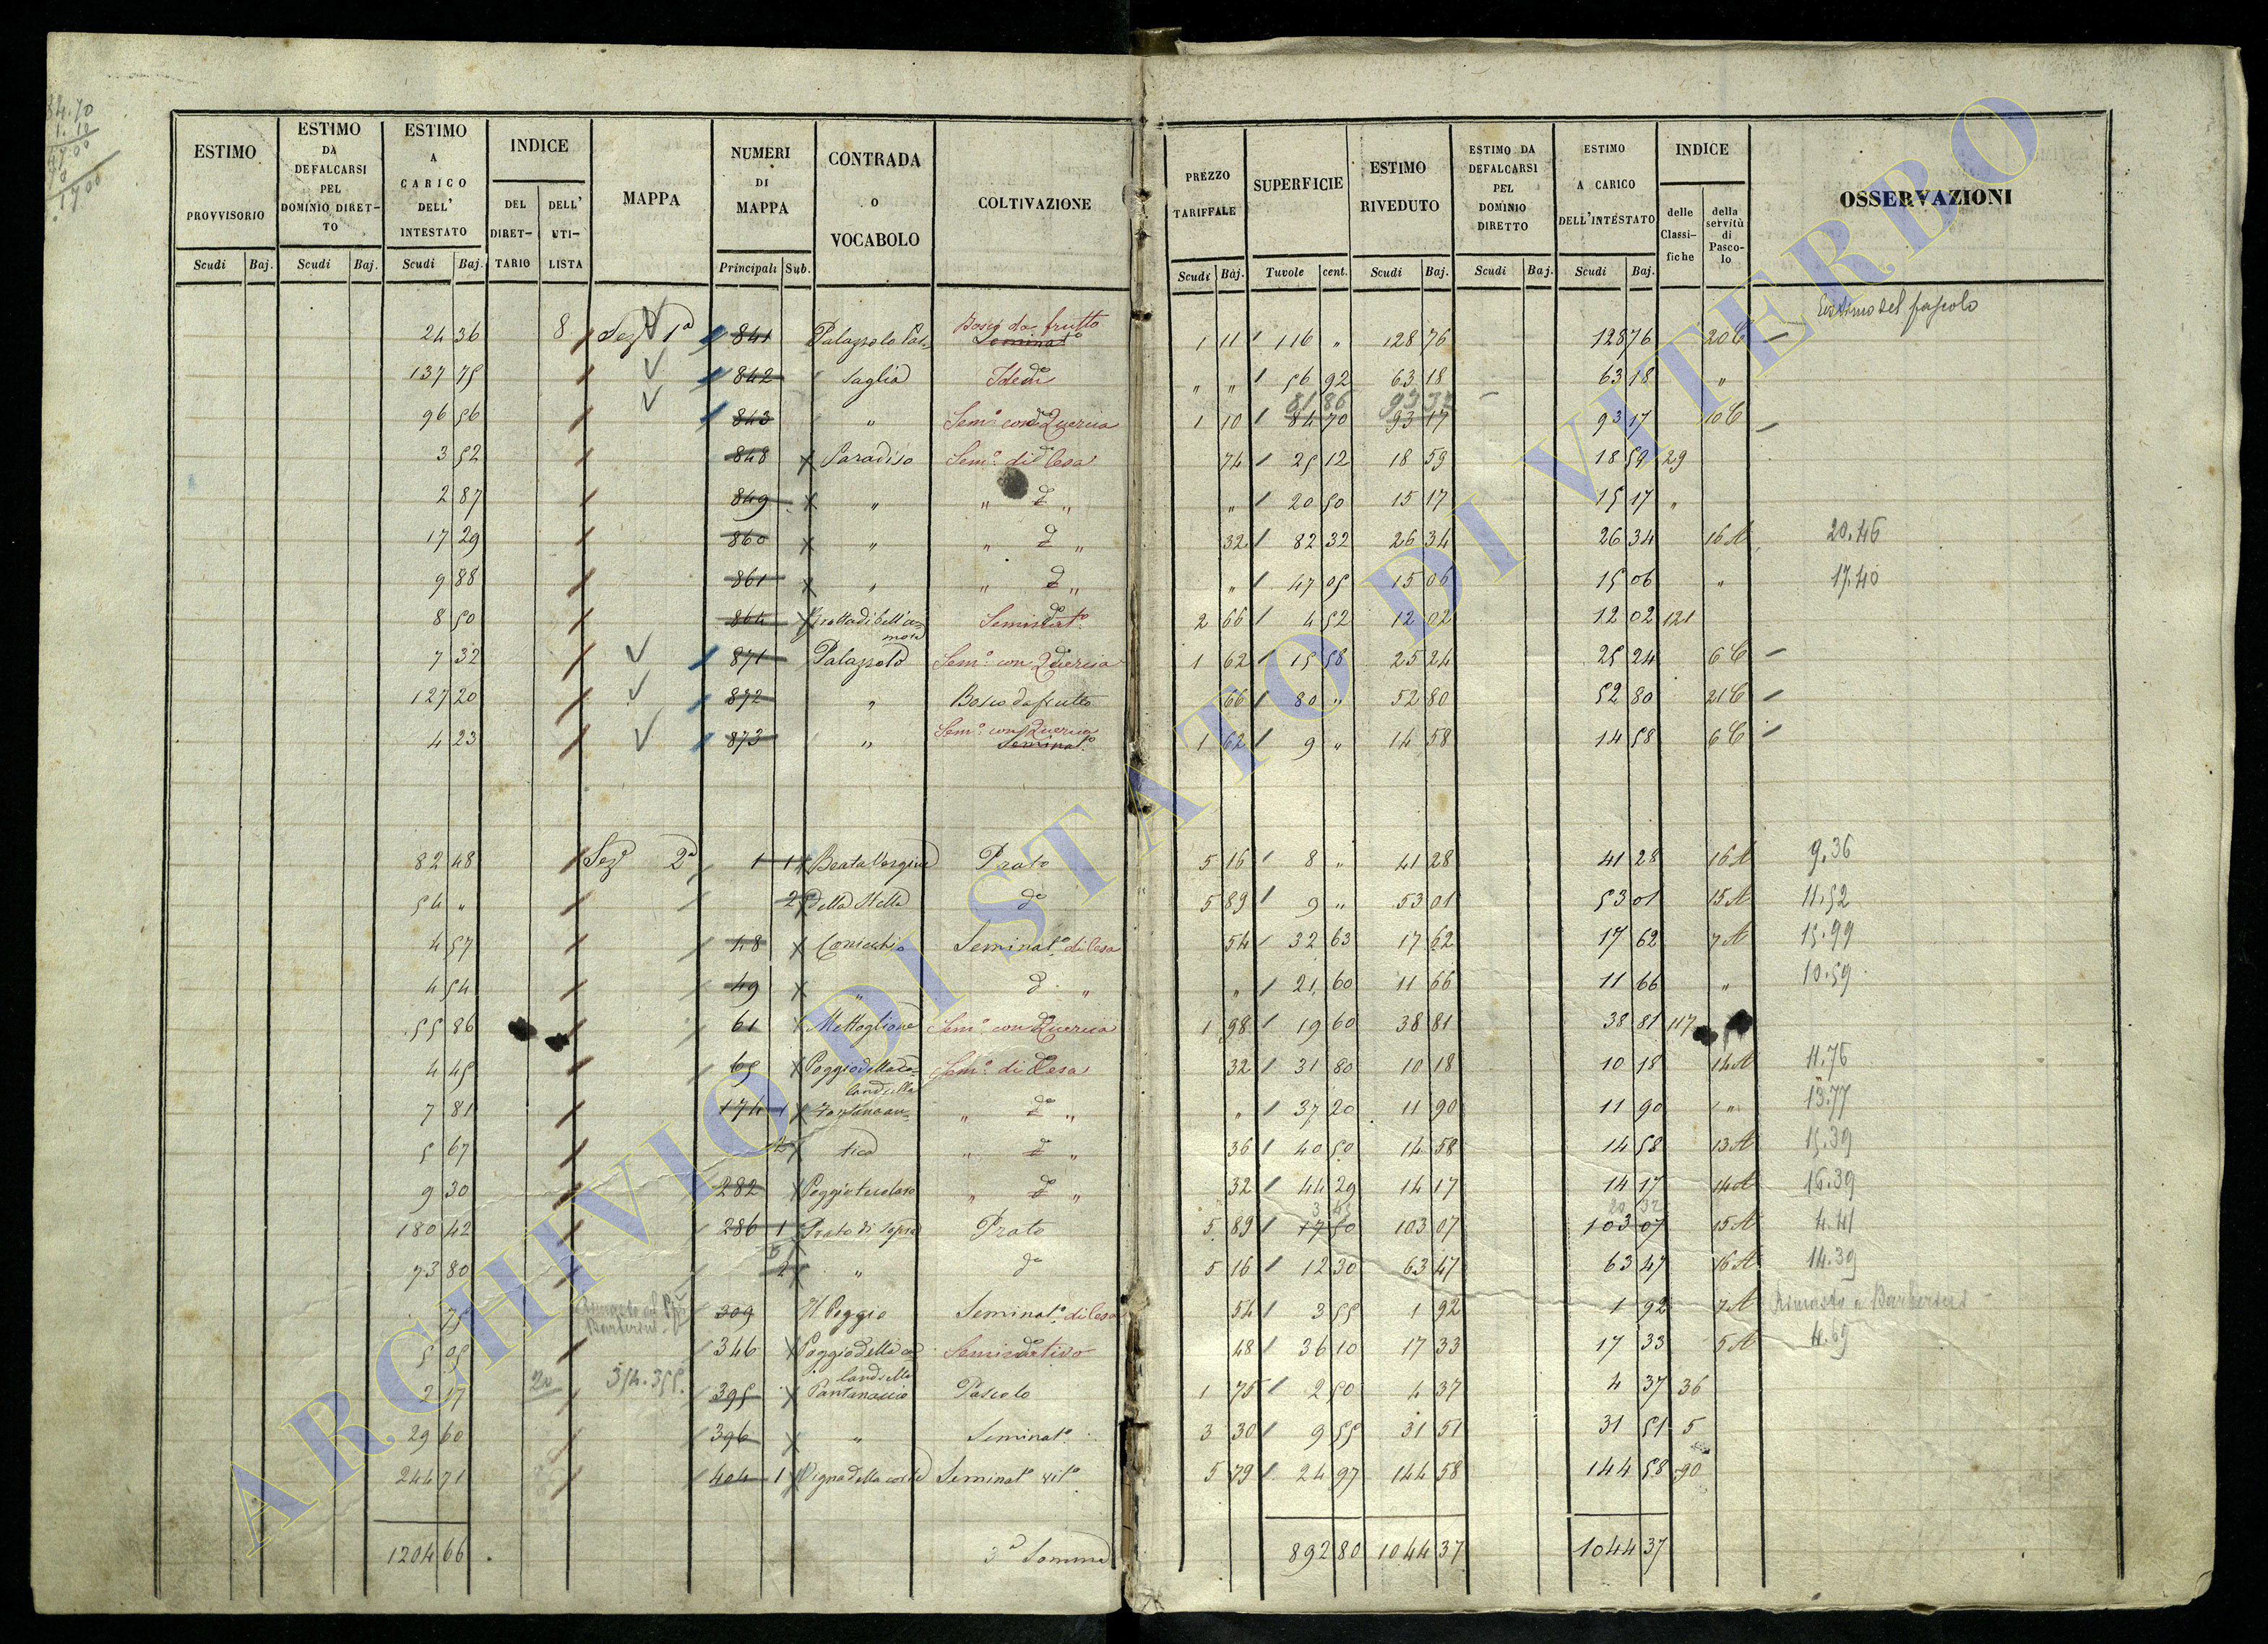 34.70
1.10
ESTIMO PROVVISORIO Scudi Baj.
ESTIMO DA DEFALCARSI PEL DOMINIO DIRETTO Scudi Baj.
ESTIMO A CARICO DELL' INTESTATO Scudi Baj.
INDICE DEL DIRETTARIO DELL' UTILISTA
MAPPA
NUMERI DI MAPPA Principali Sub.
CONTRADA o VOCABOLO
COLTIVAZIONE
PREZZO TARIFFALE Scudi Baj.
SUPERFICIE Tavole cent.
ESTIMO RIVEDUTO Scudi Baj.
ESTIMO DA DEFALCARSI PEL DOMINIO DIRETTO Scudi Baj.
ESTIMO A CARICO DELL'INTESTATO Scudi Baj.
INDICE delle Classifiche della servitù di Pascolo
OSSERVAZIONI
Estimo del pascolo
24 36 8 Sez 1ª 841 Palazzolo Bosco da frutto Seminatº 1 11 116 " 128 76 128 76 20 C
137 75 842 Idem " " 56 92 63 18 63 18 "
81 86 93 32
96 56 843 " Semº con Quercia 1 10 84 70 93 17 93 17 10 C
3 52 848 Paradiso Semº di Cesa 74 25 12 18 59 18 59 29
2 87 849 " " " " 20 50 15 17 15 17 "
17 29 860 " " " 32 82 32 26 34 26 34 16 A 20.46
9 88 861 " " " " 47 05 15 06 15 06 " 17.40
8 50 864 Seminatº 2 66 4 52 12 02 12 02 121
7 32 871 Palazzolo Semº con Quercia 1 62 15 58 25 24 25 24 6 C
127 20 872 " Bosco da frutto 66 80 " 52 80 52 80 21 C
4 23 873 " Semº con Quercia Seminatº 1 62 9 " 14 58 14 58 6 C
82 48 Sez 2ª 1 1 Beata Vergine Prato 5 16 8 " 41 28 41 28 16 A 9.36
54 " 2 della Stella dº 5 89 9 " 53 01 53 01 15 A 11.52
4 57 48 Conicchio Seminatº di Cesa 54 32 63 17 62 17 62 7 A 15.99
4 54 49 " d " " 21 60 11 66 11 66 " 10.59
55 86 61 Mettaglione Semº con Quercia 1 98 19 60 38 81 38 81 117
4 45 65 Poggio della Calandrella Semº di Cesa 32 31 80 10 18 10 18 14 A 11.75
7 81 174 1 Fontanaan- " " " 37 20 11 90 11 90 " 13.77
5 67 2 tica " " 36 40 50 14 58 14 58 13 A 15.39
9 30 282 " " 32 44 29 14 17 14 17 14 A 16.39
20 32
180 42 286 1 Prato di sopra Prato 5 89 17 50 103 07 103 07 15 A 4.41
73 80 2 " dº 5 16 12 30 63 47 63 47 16 A 14.39
75 309 Il Poggio Seminatº di Cesa 54 3 55 1 92 1 92 7 A Rimasto a Barberini
5 05 346 Poggio della Calandrella Seminativo 48 36 10 17 33 17 33 5 A 4.69
2 17 20 354.355. 395 Pantanaccio Pascolo 1 75 2 50 4 37 4 37 36
29 60 396 " Seminatº 3 30 9 55 31 51 31 51 5
244 71 404 1 Vigna della corte Seminatº vitº 5 79 24 97 144 58 144 58 90
1204 66 3ª Somma 892 80 1044 37 1044 37
ARCHIVIO DI STATO DI VITERBO